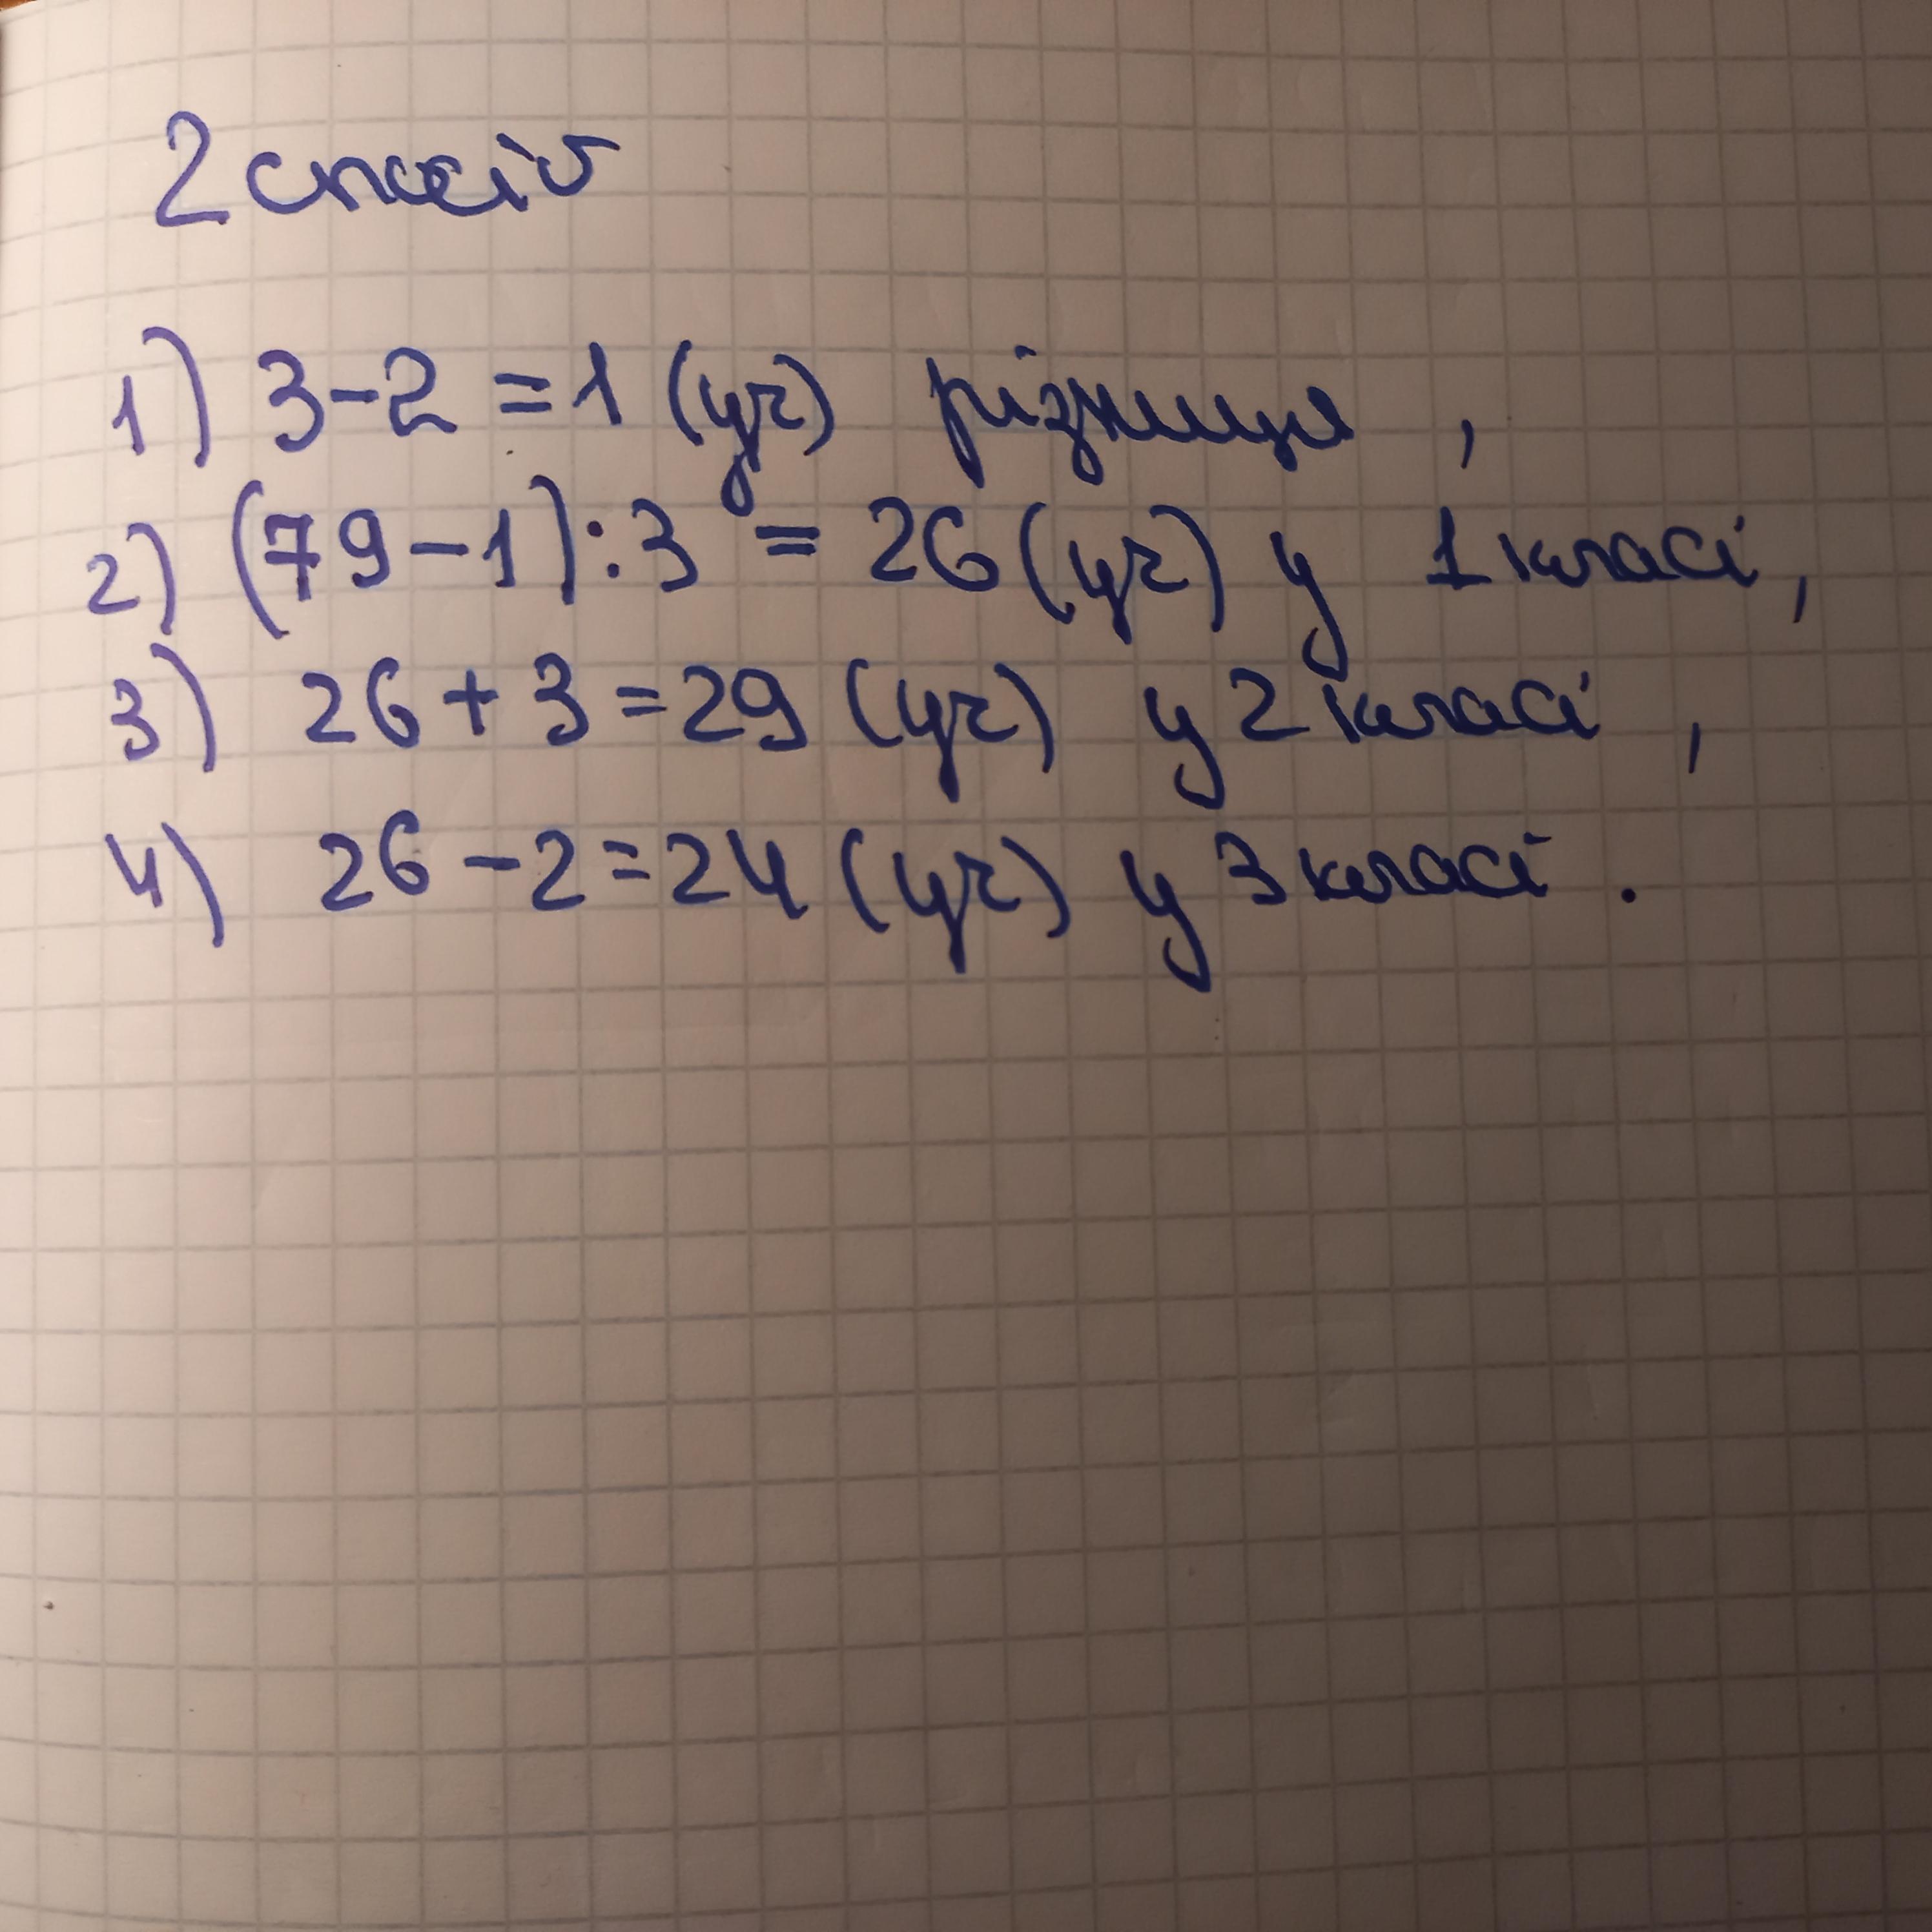 2 спосіб
1) 3-2=1 (уч) різниця ,
2) (79-1):3=26 (уч) у 1 класі,
3) 26+3=29 (уч) у 2 класі ,
4) 26-2=24 (уч) у 3 класі .